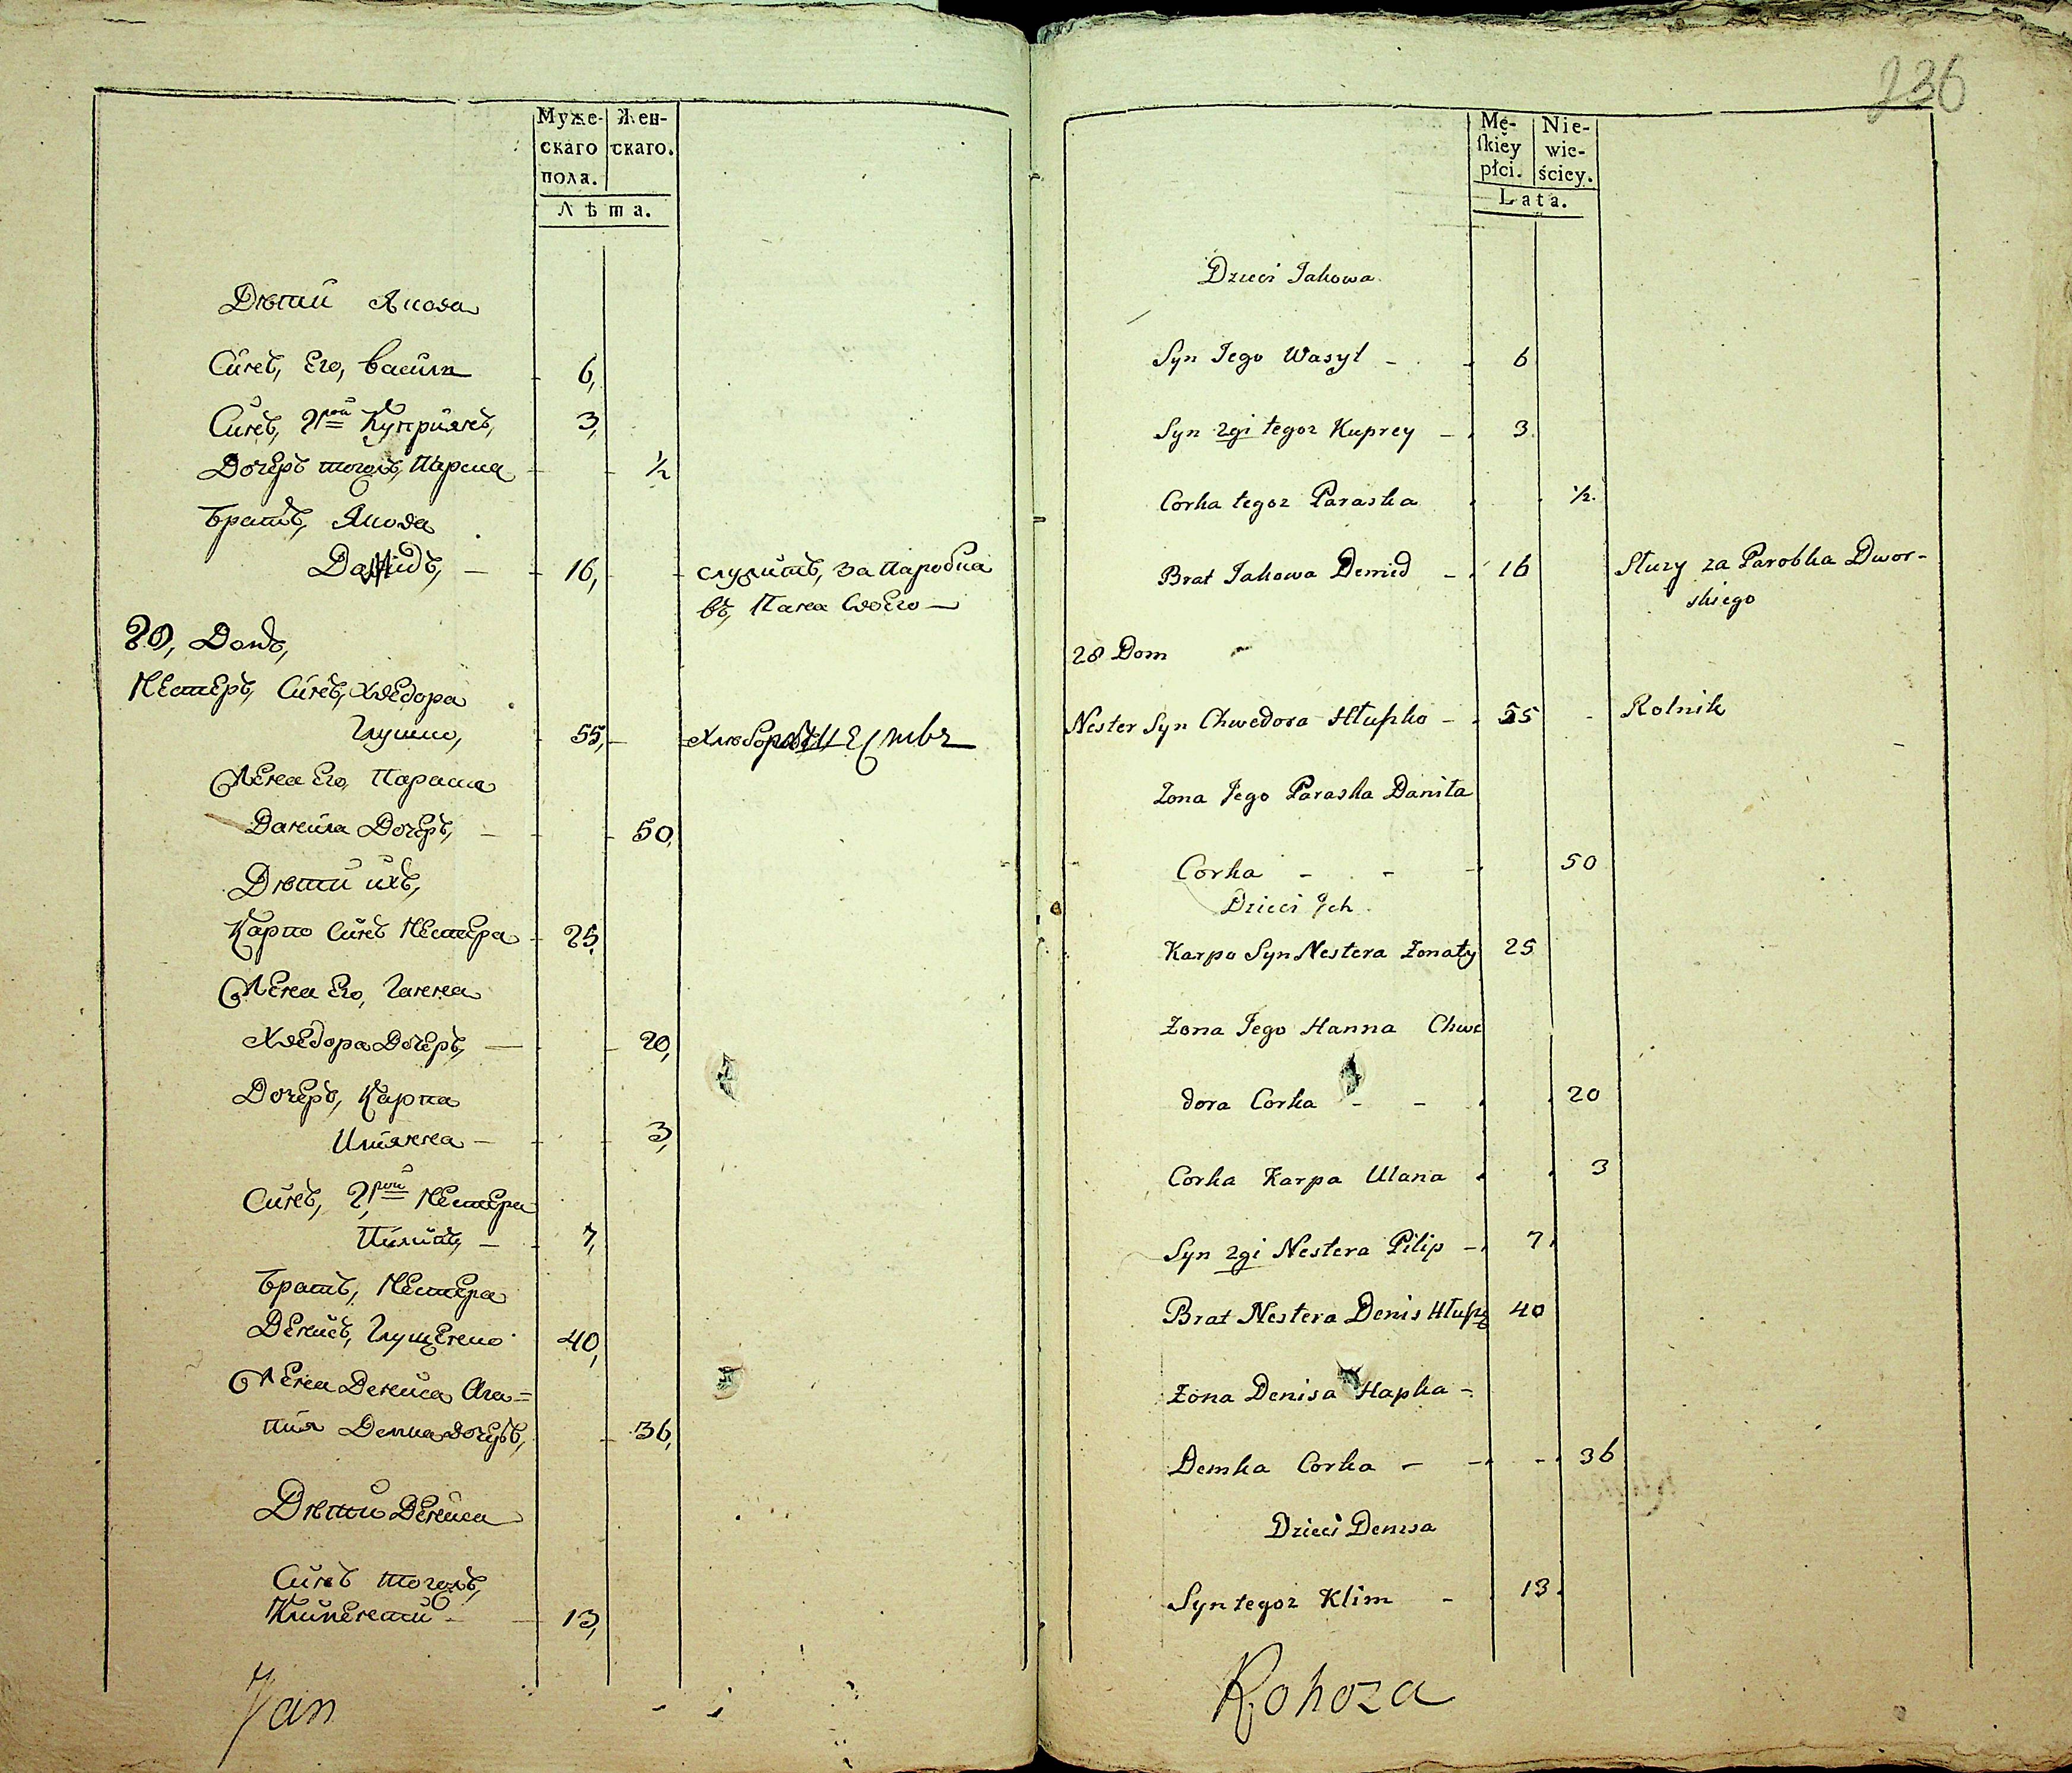 Муже-
скаго
пола.
Жен-
скаго.
Лѣта.
Дѣти Якова
Синъ, Его, Василь 6,
Синъ, 2рой Куприянъ, 3,
Дочеръ тогожъ, Параска ½
Братъ, Якова
Демидъ, — 16, служитъ, за Паробка
въ, Пана своего —
28, Домъ,
Нестеръ, Синъ, Хведора
Глушко, 55, — Хлѣборобъ
Жена Его, Параска
Данила Дочеръ, — 50,
Дѣти ихъ,
Карпо Синъ Нестера 25,
Жена Его, Ганна
Хведора Дочеръ, — 20,
Дочеръ, Карпа
Улиянна — 3,
Синъ, 2,рой Нестера
Пилипъ, — 7,
Братъ, Нестера
Денисъ, Глущенко 40,
Жена Дениса Ага=
пия Демка дочеръ, 36,
Дѣти Дениса
Синъ тогожъ,
Климентий — 13,
Jan
236
Mę-
skiey
płci.
Nie-
wie-
ściey.
Lata.
Dzieci Jakowa
Syn Jego Wasyl - 6
Syn 2gi tegoz Kuprey - 3
Corka tegoz Paraska ½.
Brat Jakowa Demid - 16 Słuzy za Parobka Dwor-
skiego
28 Dom
Nester Syn Chwedora Hłuszko - 55 - Rolnik
Zona Jego Paraska Daniła
Corka - - - 50
Dzieci Jch
Karpo Syn Nestera Zonaty 25
Zona Jego Hanna Chwe
dora Corka - - 20
Corka Karpa Ulana 3
Syn 2gi Nestera Pilip - 7
Brat Nestera Denis 40
Zona Denisa Hapka -
Demka Corka - - - 36
Dzieci Denisa
Syn tegoz Klim - 13
Rohoza